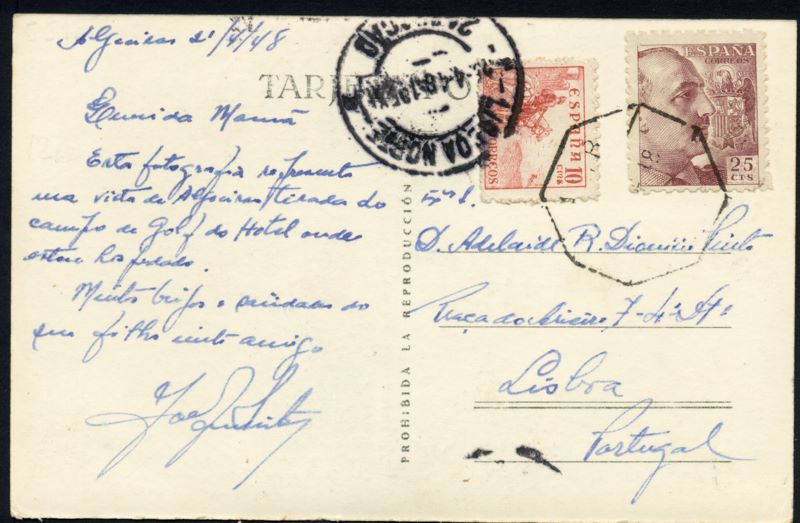 Algeciras 21/4/48
TARJETA POSTAL
Querida Mamã
Esta fotografia representa
uma vista de Algeciras tirada do
campo de Golf do Hotel onde
estou hospedado.
Muitos beijos e saudades do
seu filho muito amigo
PROHIBIDA LA REPRODUCCIÓN
ESPAÑA
CORREOS
10
CTS
ESPAÑA
CORREOS
25
CTS
D. Adelaide R. Dionisio Pinto
7-4º Dtº
Lisboa
Portugal